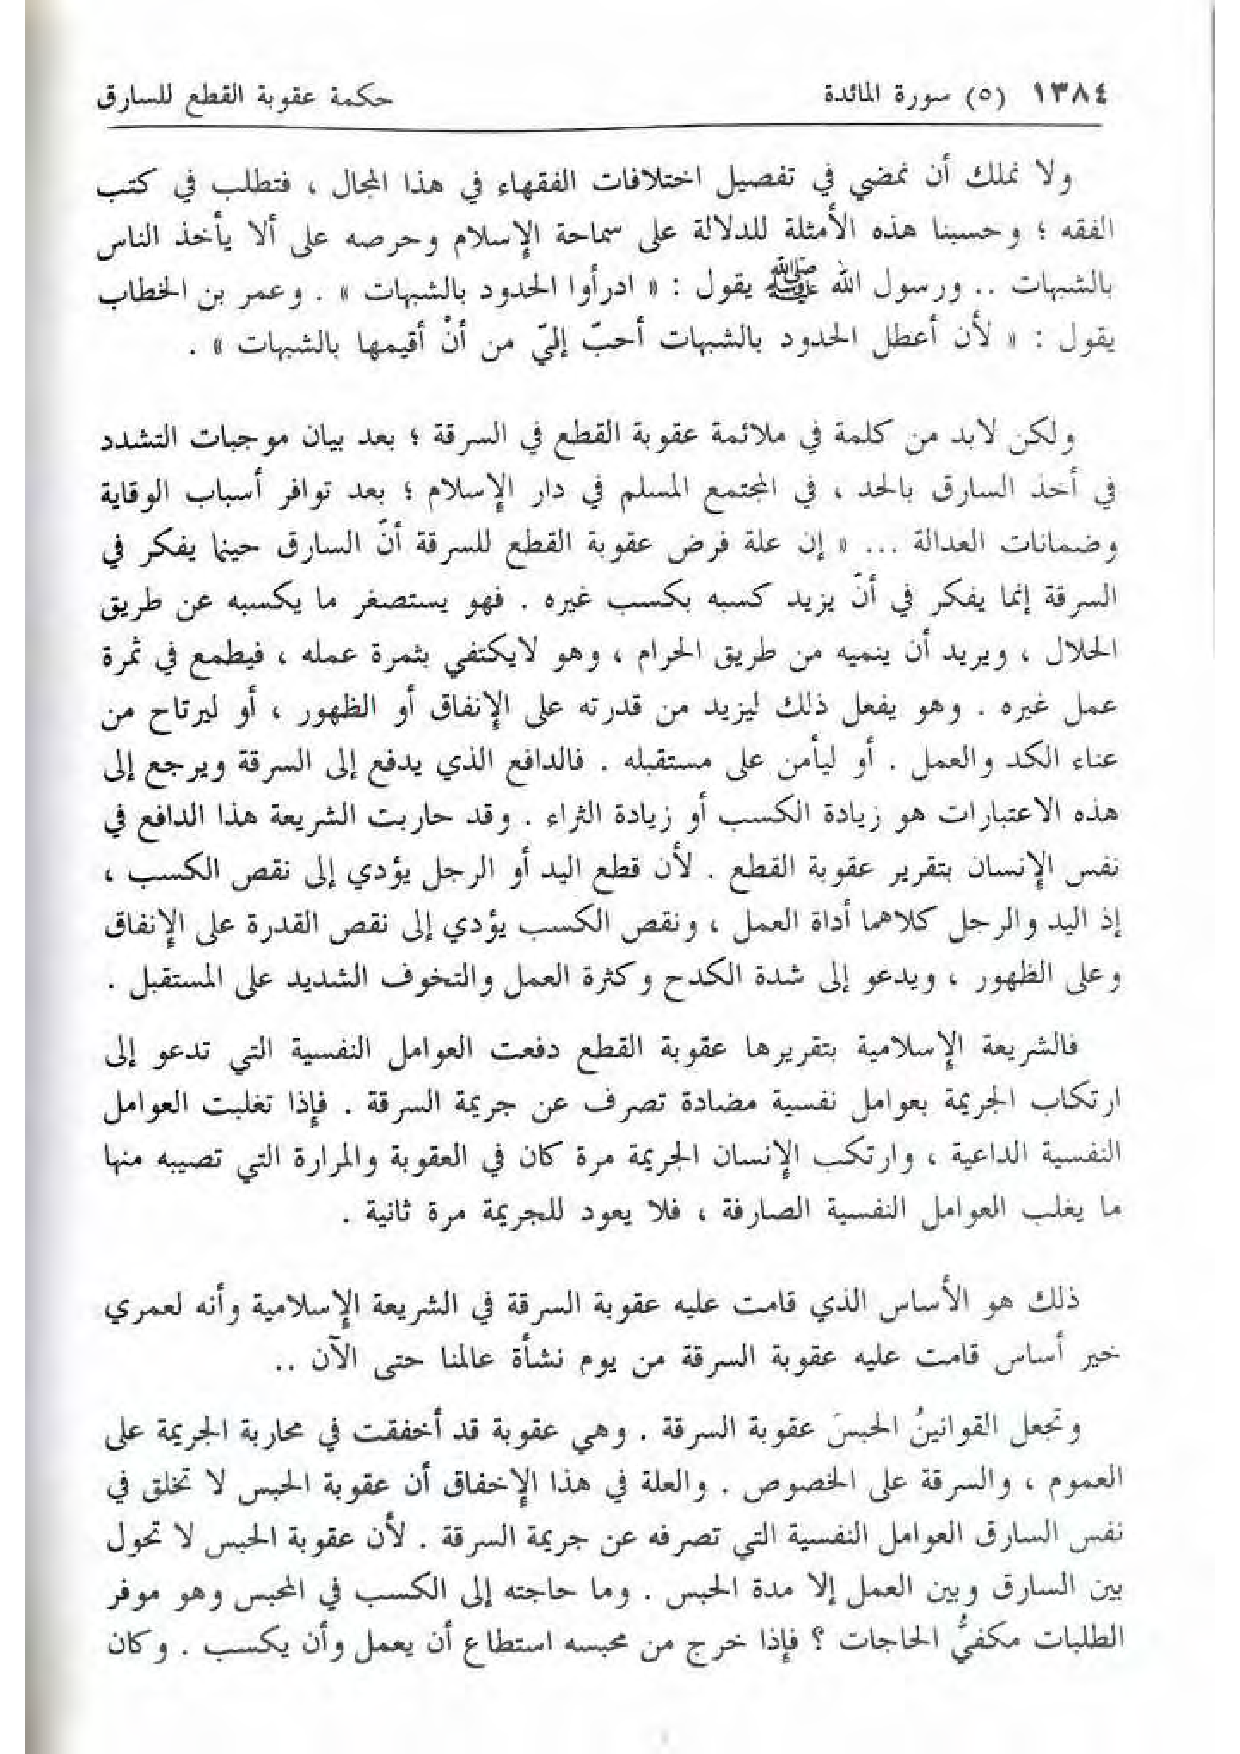 ١٣٨٤ (٥) سورة المائدة حكمة عقوبة القطع للسارق
ولا نملك أن نمضي في تفصيل اختلافات الفقهاء في هذا المجال ، فتطلب في كتب
الفقه ؛ وحسبنا هذه الأمثلة للدلالة على سماحة الإسلام وحرصه على ألا يأخذ الناس
بالشبهات .. ورسول الله ﷺ يقول : « ادرأوا الحدود بالشبهات » . وعمر بن الخطاب
يقول : « لأن أعطل الحدود بالشبهات أحبّ إليّ من أنْ أقيمها بالشبهات » .
ولكن لابد من كلمة في ملائمة عقوبة القطع في السرقة ؛ بعد بيان موجبات التشدد
في أخذ السارق بالحد ، في المجتمع المسلم في دار الإسلام ؛ بعد توافر أسباب الوقاية
وضمانات العدالة ... « إن علة فرض عقوبة القطع للسرقة أنّ السارق حينما يفكر في
السرقة إنما يفكر في أنّ يزيد كسبه بكسب غيره . فهو يستصغر ما يكسبه عن طريق
الحلال ، ويريد أن ينميه من طريق الحرام ، وهو لايكتفي بثمرة عمله ، فيطمع في ثمرة
عمل غيره . وهو يفعل ذلك ليزيد من قدرته على الإنفاق أو الظهور ، أو ليرتاح من
عناء الكد والعمل . أو ليأمن على مستقبله . فالدافع الذي يدفع إلى السرقة ويرجع إلى
هذه الاعتبارات هو زيادة الكسب أو زيادة الثراء . وقد حاربت الشريعة هذا الدافع في
نفس الإنسان بتقرير عقوبة القطع . لأن قطع اليد أو الرجل يؤدي إلى نقص الكسب ،
إذ اليد والرجل كلاهما أداة العمل ، ونقص الكسب يؤدي إلى نقص القدرة على الإنفاق
وعلى الظهور ، ويدعو إلى شدة الكدح وكثرة العمل والتخوف الشديد على المستقبل .
فالشريعة الإسلامية بتقريرها عقوبة القطع دفعت العوامل النفسية التي تدعو إلى
ارتكاب الجريمة بعوامل نفسية مضادة تصرف عن جريمة السرقة . فإذا تغلبت العوامل
النفسية الداعية ، وارتكب الإنسان الجريمة مرة كان في العقوبة والمرارة التي تصيبه منها
ما يغلب العوامل النفسية الصارفة ، فلا يعود للجريمة مرة ثانية .
ذلك هو الأساس الذي قامت عليه عقوبة السرقة في الشريعة الإسلامية وأنه لعمري
خير أساس قامت عليه عقوبة السرقة من يوم نشأة عالمنا حتى الآن ..
وتجعل القوانينُ الحبسَ عقوبة السرقة . وهي عقوبة قد أخفقت في محاربة الجريمة على
العموم ، والسرقة على الخصوص . والعلة في هذا الإخفاق أن عقوبة الحبس لا تخلق في
نفس السارق العوامل النفسية التي تصرفه عن جريمة السرقة . لأن عقوبة الحبس لا تحول
بين السارق وبين العمل إلا مدة الحبس . وما حاجته إلى الكسب في المحبس وهو موفر
الطلبات مكفيُّ الحاجات ؟ فإذا خرج من محبسه استطاع أن يعمل وأن يكسب . وكان